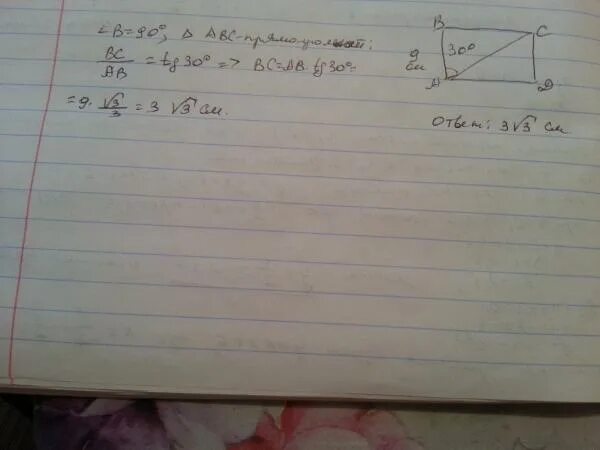 ∠B=90°, Δ ABC-прямоугольный;
BC/AB = tg30° => BC=AB·tg30°=
=9·√3/3 = 3√3 см.
B
C
9 см
30°
A
D
Ответ: 3√3 см